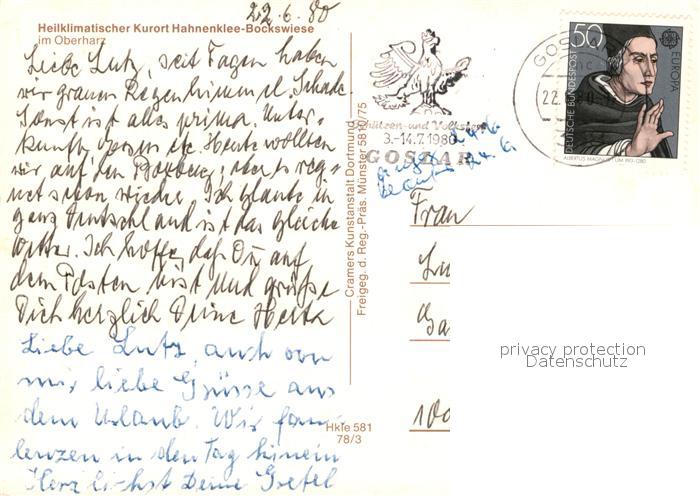 22.6.80
Heilklimatischer Kurort Hahnenklee-Bockswiese
im Oberharz
Liebe Lutz, seit Tagen haben
wir grauen Regenhimmel. Schade
Sonst ist alles prima. Unter-
kunft, Essen etc. Heute wollten
wir auf den Bocksberg, aber es reg-
net schon wieder. Ich glaube in
ganz Deutschland ist das gleiche
Wetter. Ich hoffe, daß Du auf
dem Posten bist und grüße
Dich herzlich Deine Herta
Liebe Lutz, auch von
mir liebe Grüsse aus
dem Urlaub. Wir faul-
lenzen in den Tag hinein
Herzlichst Deine Gretel
Hkle 581
78/3
Cramers Kunstanstalt Dortmund
Freigeg. d. Reg.-Präs. Münster 5810/75
Schützen- und Volksfest
3.-14.7.1980
GOSLAR
24.6.
GOS
22.
50
DEUTSCHE BUNDESPOST
EUROPA
ALBERTUS MAGNUS 1193-1280
Frau
Lu
Ba
100
privacy protection
Datenschutz